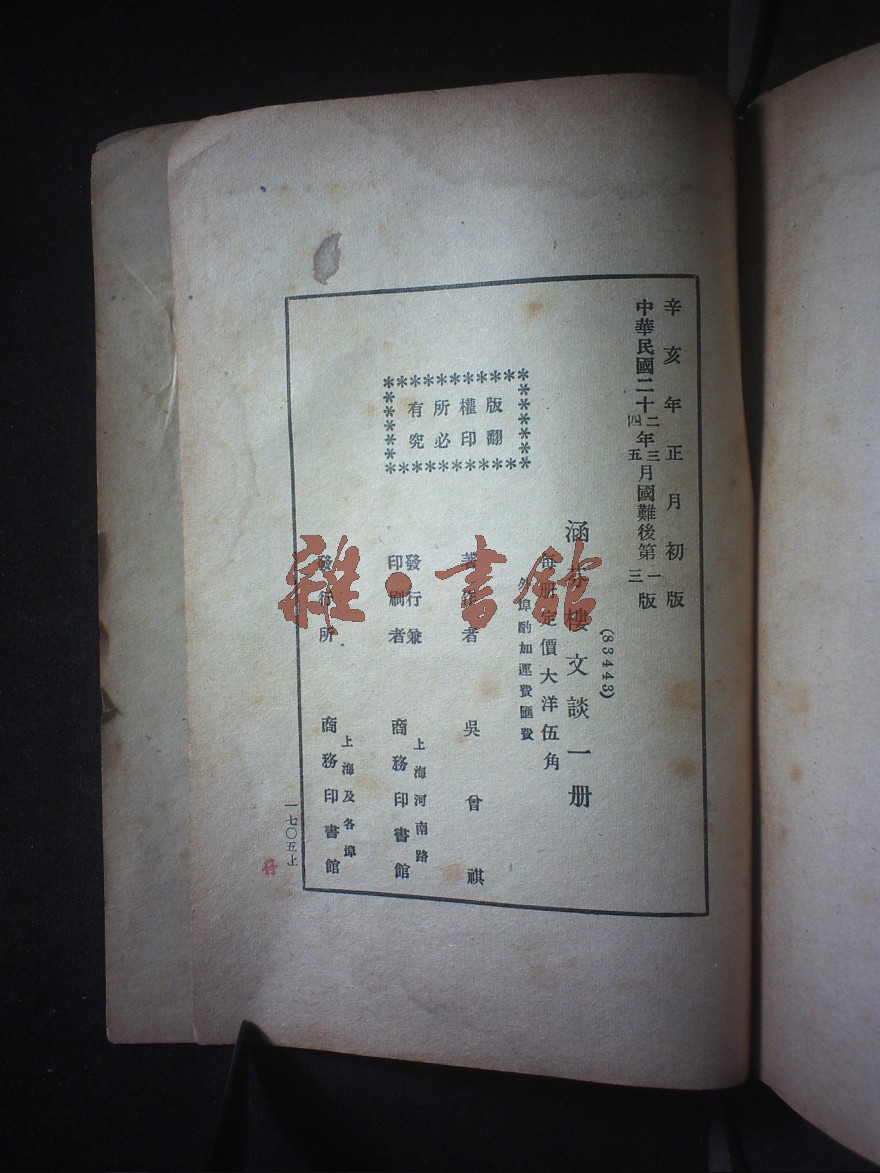 辛亥年正月初版
中華民國二十二年三月國難後第一版
四 五 三
(83443)
涵芬樓文談一册
每册定價大洋伍角
外埠酌加運費匯費
版權所有
翻印必究
著作者 吳曾祺
發行兼
印刷者
上海河南路
商務印書館
發行所
上海及各埠
商務印書館
一七〇五上
雜·書館